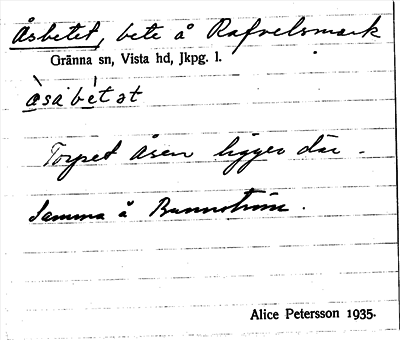 Åsbetet, bete å Rafvelsmark
Gränna sn, Vista hd, Jkpg. l.
àsabétət
Torpet Åsen ligger där.
Samma å
Alice Petersson 1935.